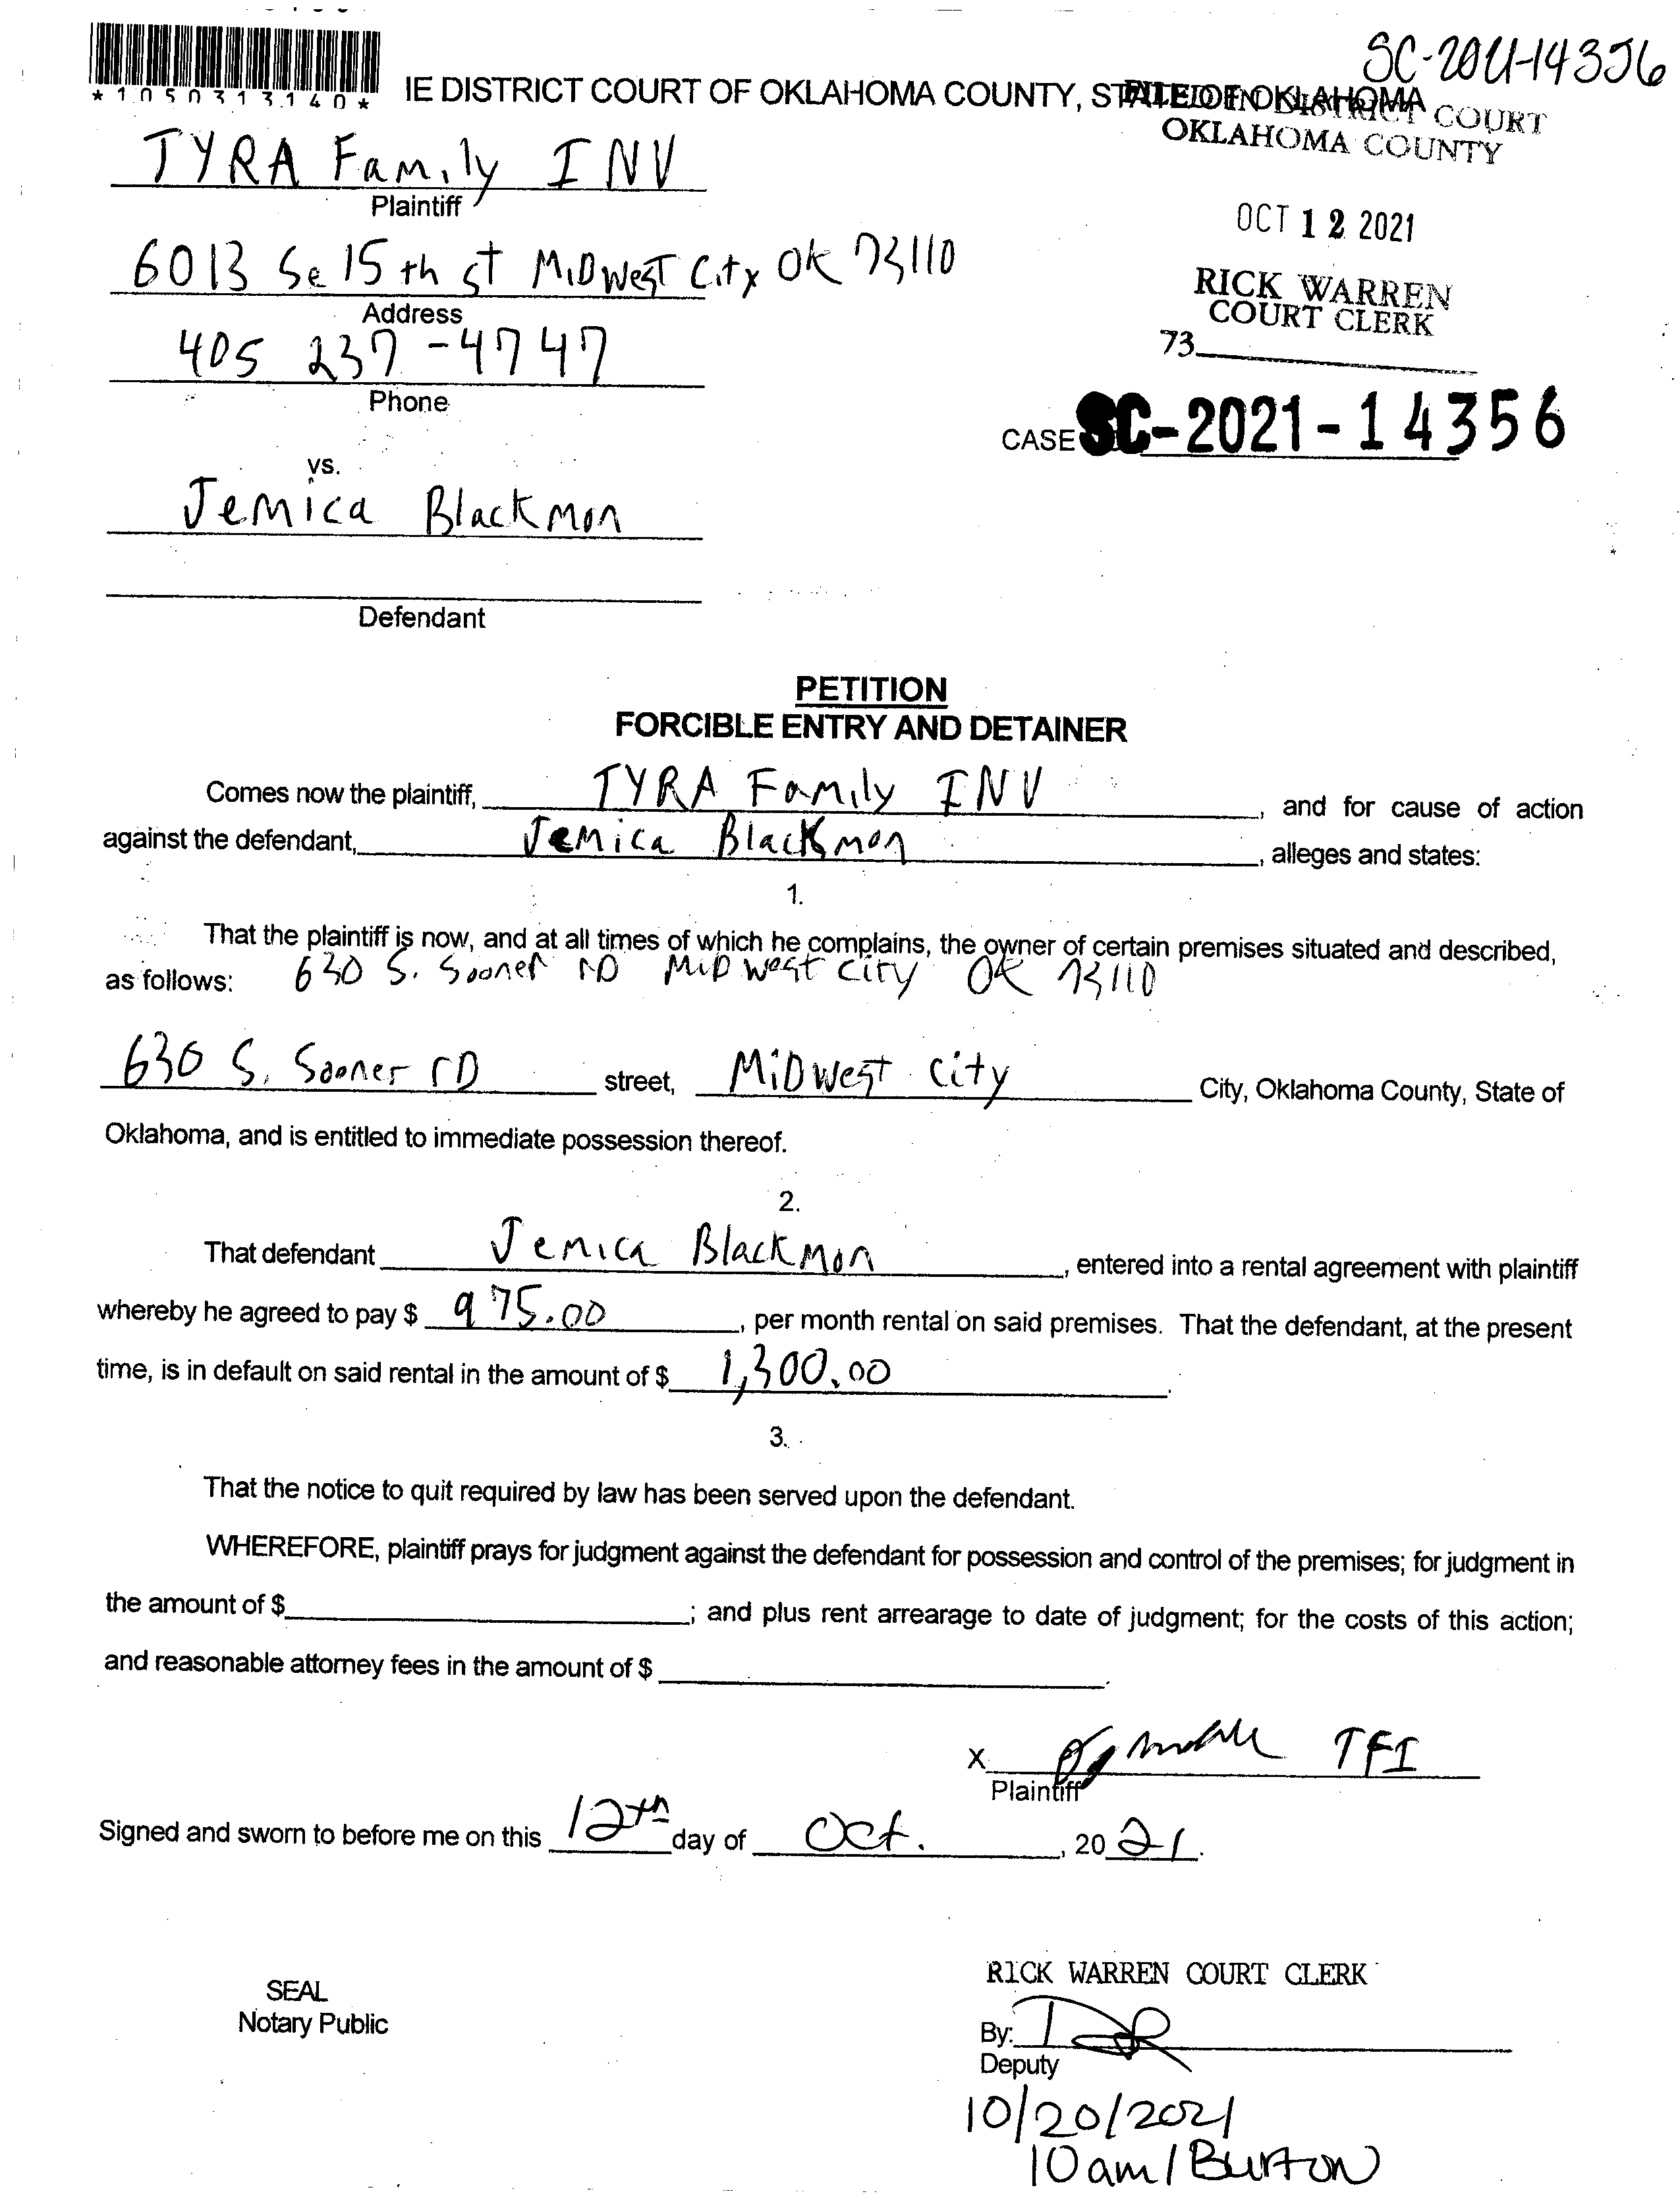 SC-2021-14356
*1050313140*
IE DISTRICT COURT OF OKLAHOMA COUNTY, STATE OF OKLAHOMA
FILED IN DISTRICT COURT
OKLAHOMA COUNTY
TYRA Family INV
Plaintiff
OCT 12 2021
6013 Se 15th st MiDwest City OK 73110
Address
RICK WARREN
COURT CLERK
405 237-4747
73
Phone
CASE SC-2021-14356
vs.
Jemica Blackmon
Defendant
PETITION
FORCIBLE ENTRY AND DETAINER
Comes now the plaintiff, TYRA Family INV, and for cause of action
against the defendant, Jemica Blackmon, alleges and states:
1.
That the plaintiff is now, and at all times of which he complains, the owner of certain premises situated and described,
as follows: 630 S. Sooner rD MiD west city OK 73110
630 S. Sooner rD street, MiDwest city City, Oklahoma County, State of
Oklahoma, and is entitled to immediate possession thereof.
2.
That defendant Jemica Blackmon, entered into a rental agreement with plaintiff
whereby he agreed to pay $ 975.00, per month rental on said premises. That the defendant, at the present
time, is in default on said rental in the amount of $ 1,300.00.
3.
That the notice to quit required by law has been served upon the defendant.
WHEREFORE, plaintiff prays for judgment against the defendant for possession and control of the premises; for judgment in
the amount of $ ; and plus rent arrearage to date of judgment; for the costs of this action;
and reasonable attorney fees in the amount of $ .
X TFI
Plaintiff
Signed and sworn to before me on this 12th day of Oct., 2021.
RICK WARREN COURT CLERK
SEAL
Notary Public
By:
Deputy
10/20/2021
10am/Burton